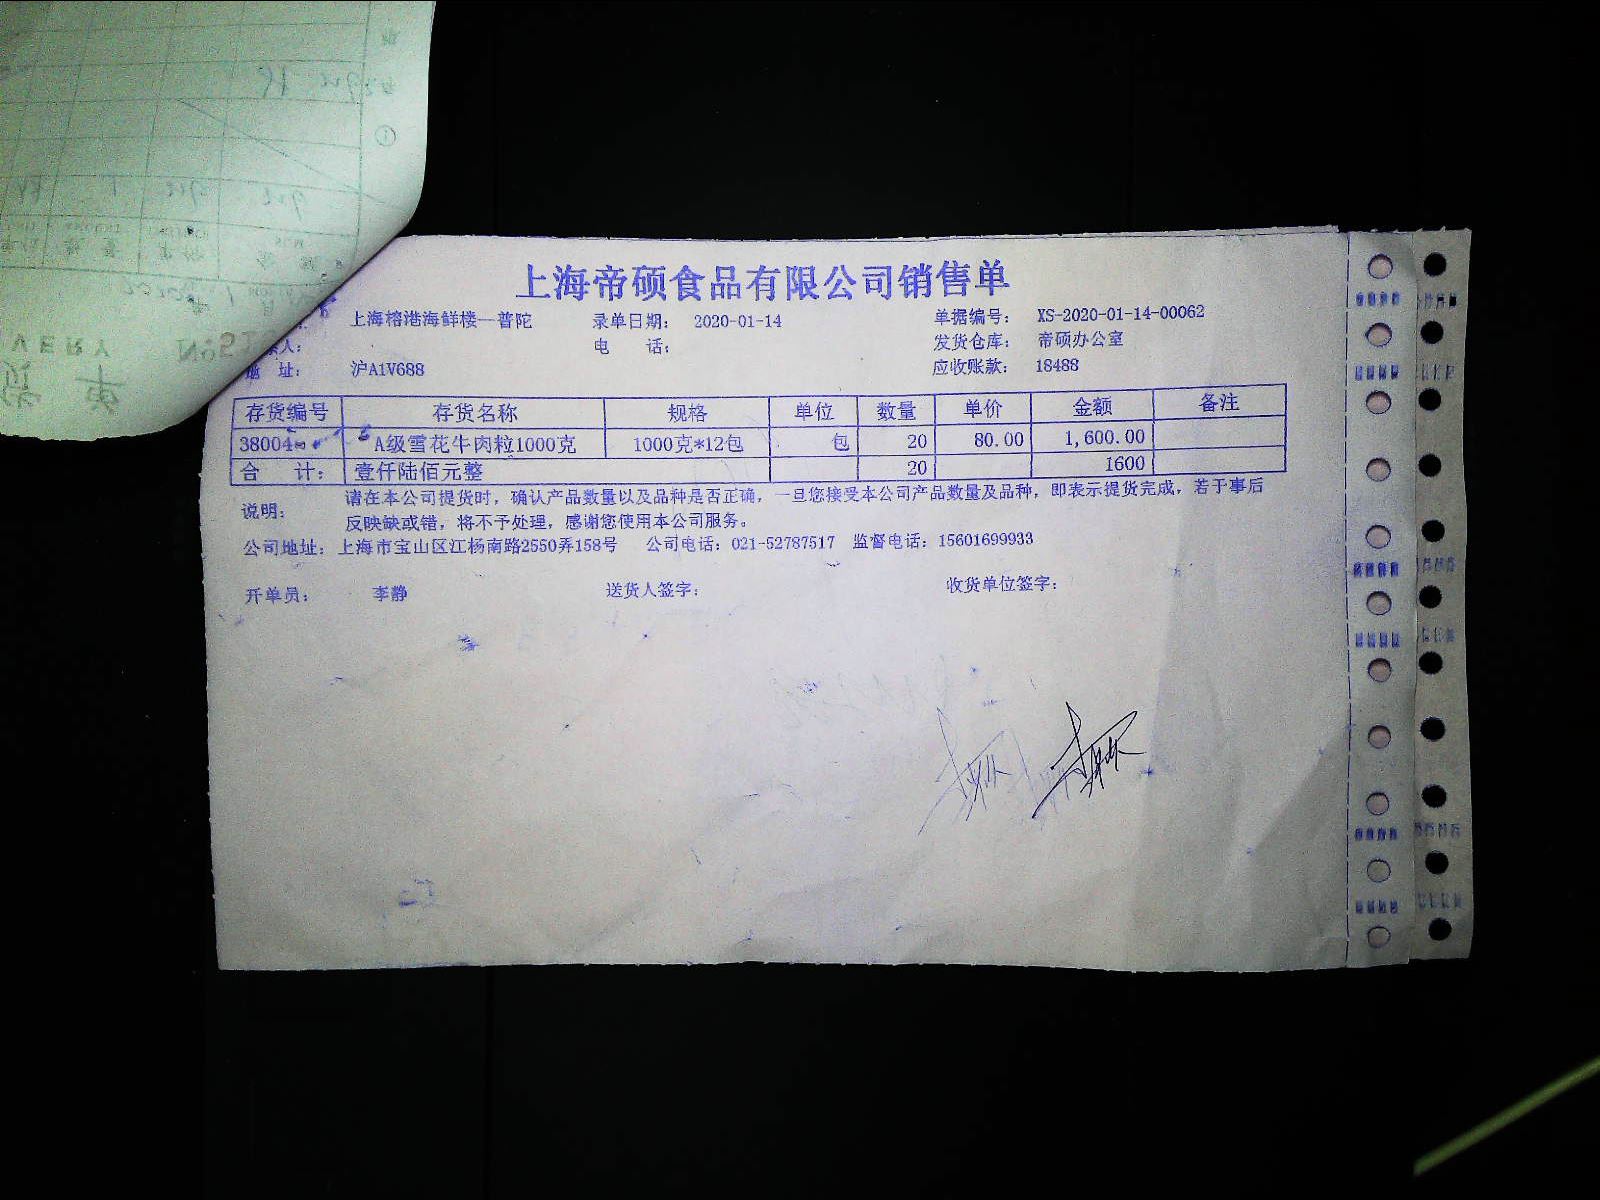 上海帝硕食品有限公司销售单
上海榕港海鲜楼—普陀 录单日期: 2020-01-14 单据编号: XS-2020-01-14-00062
人: 电 话: 发货仓库: 帝硕办公室
地 址: 沪A1V688 应收账款: 18488
存货编号 存货名称 规格 单位 数量 单价 金额 备注
38004 A级雪花牛肉粒1000克 1000克*12包 包 20 80.00 1,600.00
合 计: 壹仟陆佰元整 20 1600
说明: 请在本公司提货时，确认产品数量以及品种是否正确，一旦您接受本公司产品数量及品种，即表示提货完成，若于事后
反映缺或错，将不予处理，感谢您使用本公司服务。
公司地址: 上海市宝山区江杨南路2550弄158号 公司电话: 021-52787517 监督电话: 15601699933
开单员: 李静 送货人签字: 收货单位签字: